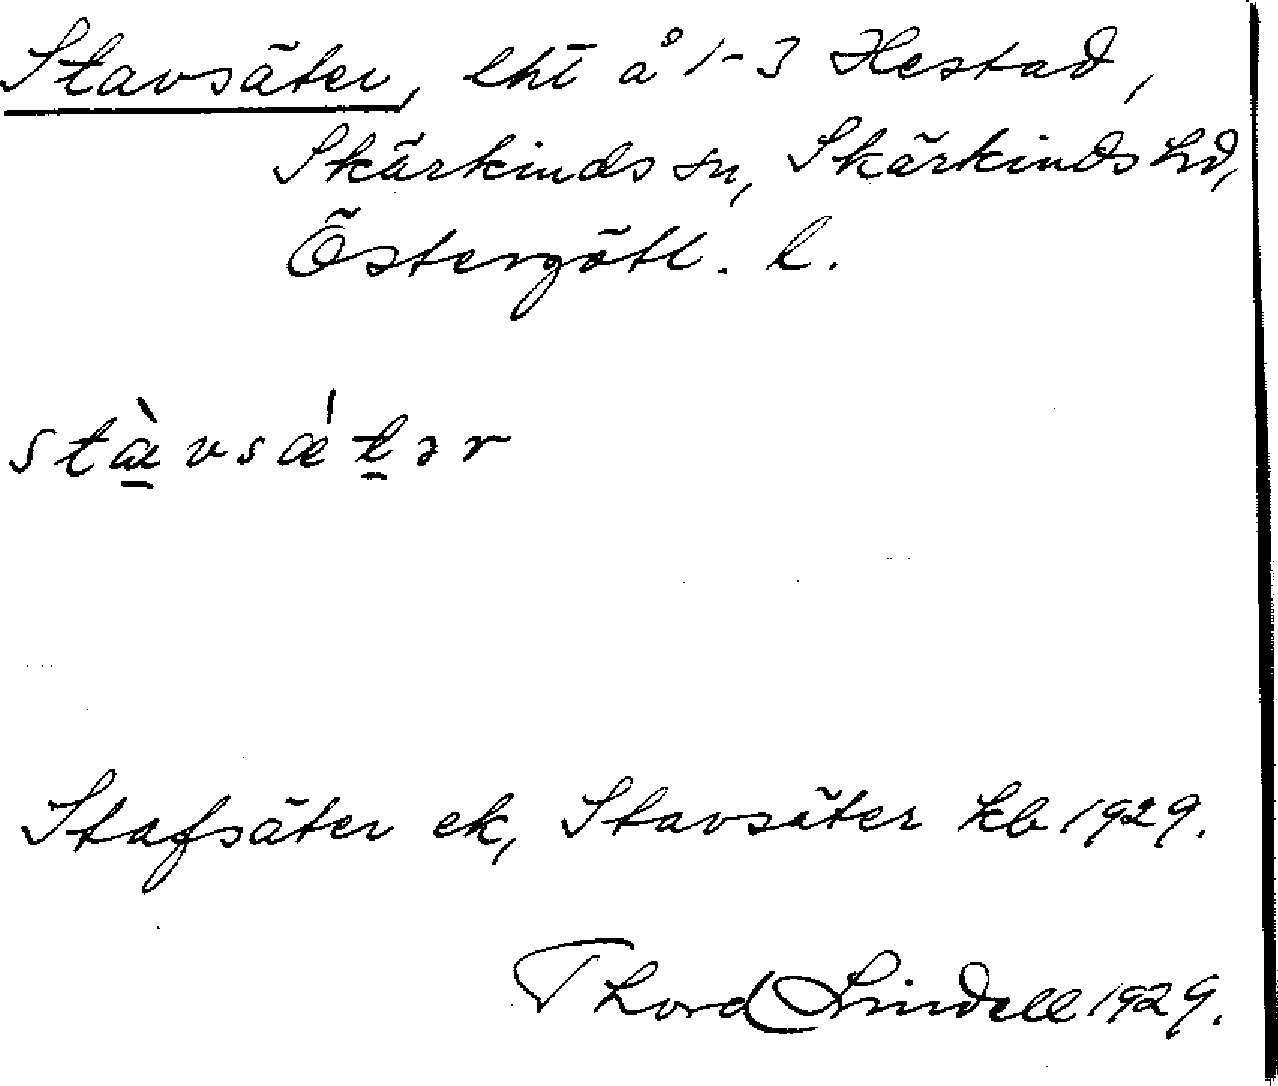 Stavsäter, lht å 1-3 Hestad,
Skärkinds sn, Skärkinds hd,
Östergötl. l.
stàvsǽtər
Stafsäter ek, Stavsäter kb 1929.
Thord Lindell 1929.